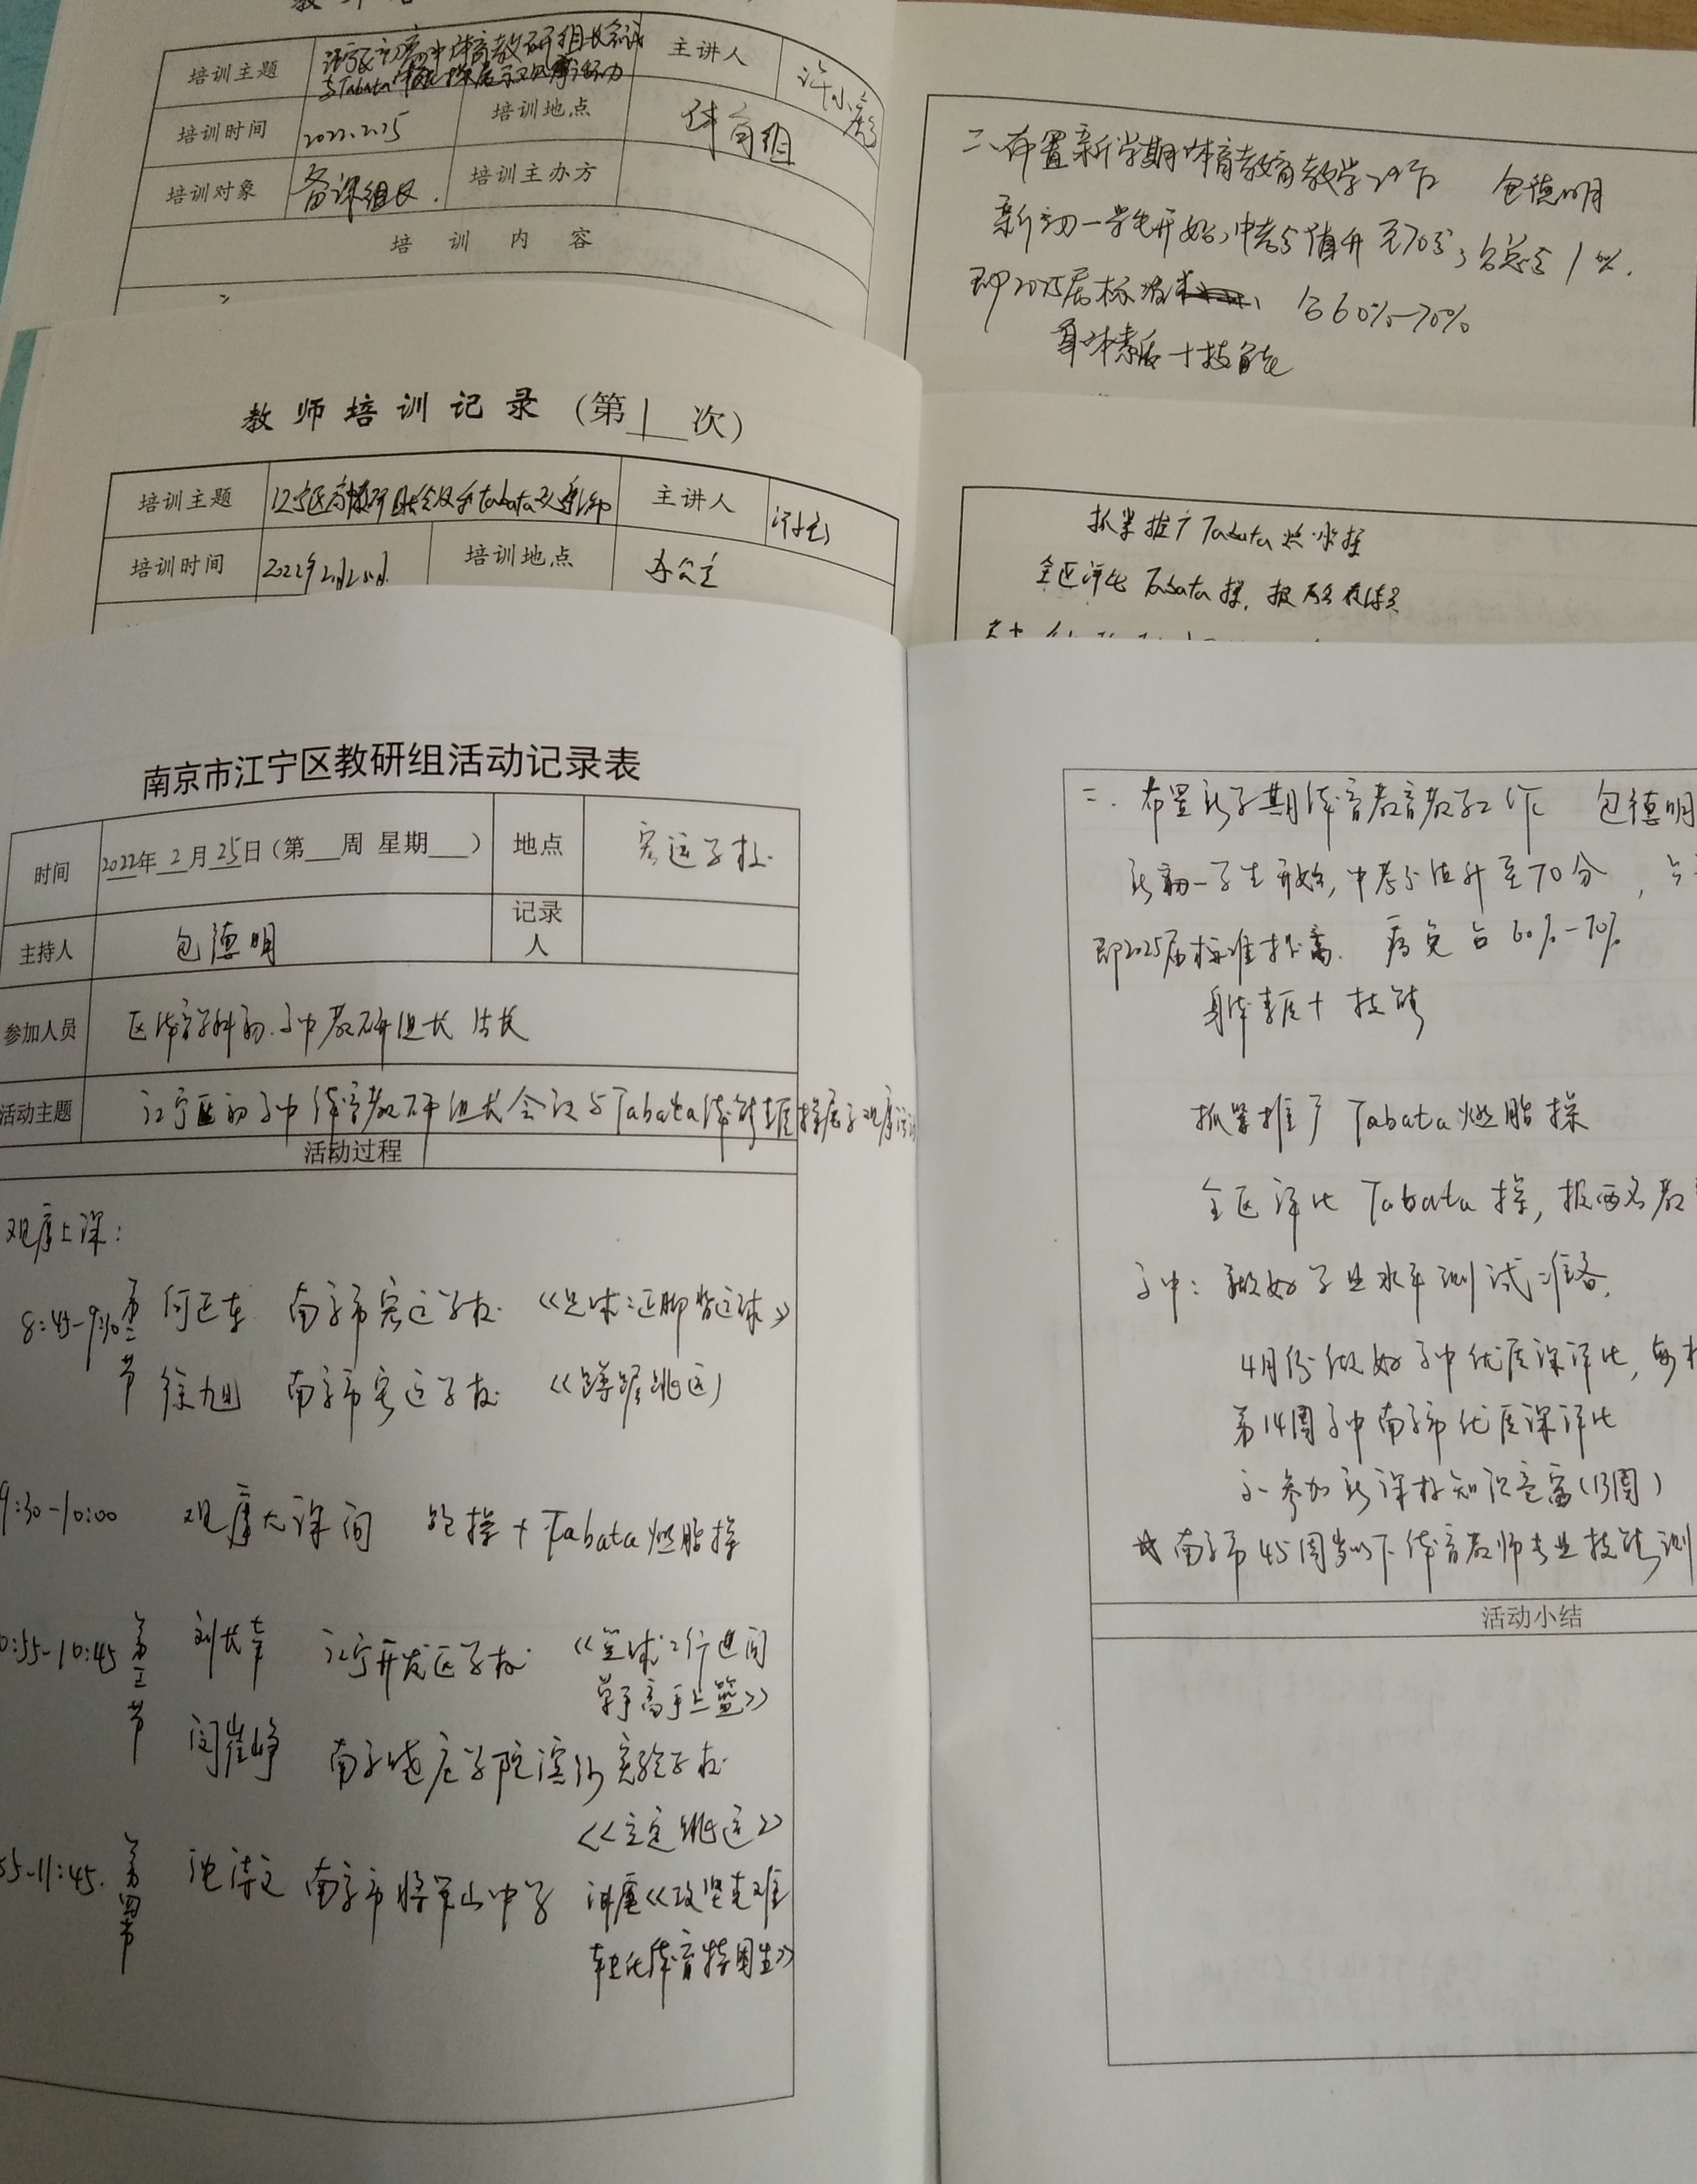 培训主题
主讲人
培训时间 2022.2.25 培训地点 体育组
培训对象 备课组长. 培训主办方
培训内容
二、布置新学期体育教育教学工作 包德明
新初一学生开始,中考分值升至70分,
即2025届标准 占60%-70%
身体素质+技能
教师培训记录(第1次)
培训主题
主讲人
培训时间 2022年2月 培训地点 办公室
抓紧推广Tabata燃脂操
全区评比Tabata操,报两名教练员
南京市江宁区教研组活动记录表
时间 2022年2月25日(第 周 星期 ) 地点 宏运学校
主持人 包德明 记录人
参加人员 区体育学科初、高中教研组长 片长
活动主题 江宁区初高中体育教研组长会议与Tabata体能操展示观摩活动
活动过程
观摩上课:
8:45-9: 第二节 何正东 南京市宏运学校 《足球:正脚背运球》
徐旭 南京市宏运学校 《蹲踞跳远》
9:30-10:00 观摩大课间 跑操+Tabata燃脂操
:55-10:45 第三节 江宁开发区学校 行进间
单手高手上篮》
闵崔峥 南京晓庄学院滨河实验学校
《立定跳远》
55-11:45. 第四节 沈涛文 南京市将军山中学 讲座《攻坚克难
转化体育特困生》
二.布置新学期体育教育教学工作 包德明
新初一学生开始,中考分值升至70分,占
即2025届标准提高. 病免占60%-70%
身体素质+技能
抓紧推广Tabata燃脂操
全区评比Tabata操,报两名教
高中:做好学业水平测试准备,
4月份做好高中优质课评比,每校
第14周高中南京市优质课评比
高一参加新课标知识竞赛(13周)
☆南京市45周岁以下体育教师专业技能测
活动小结